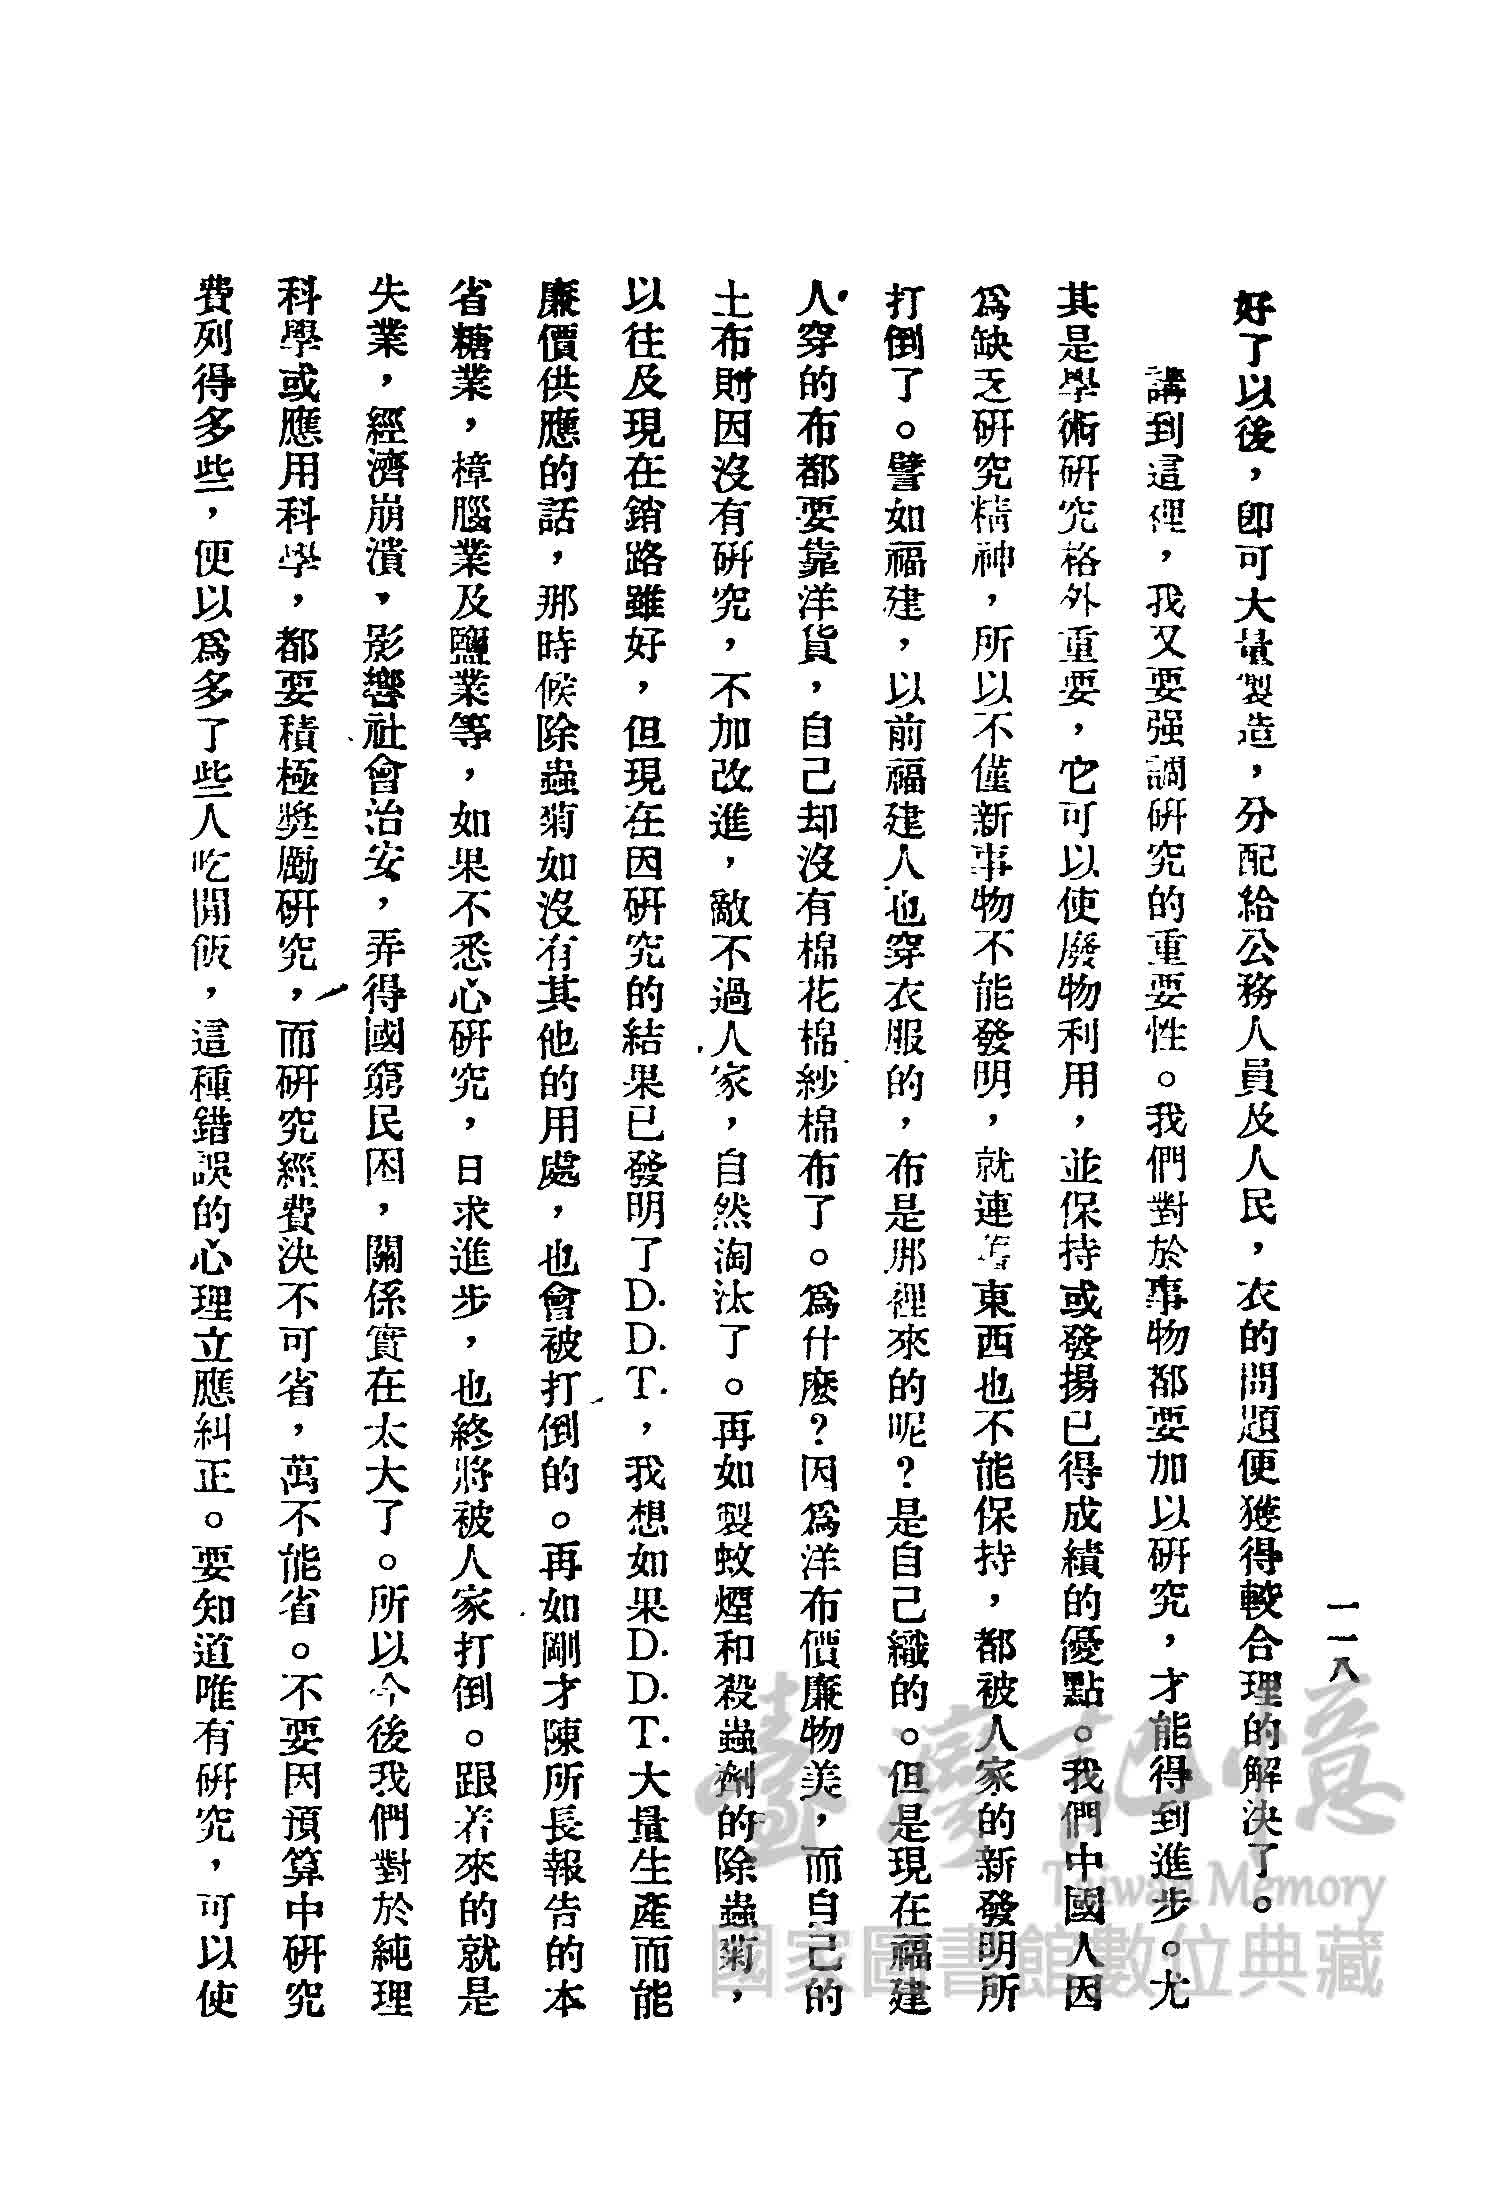 一一八
好了以後，卽可大量製造，分配給公務人員及人民，衣的問題便獲得較合理的解決了。
講到這裡，我又要强調研究的重要性。我們對於事物都要加以研究，才能得到進步。尤
其是學術研究格外重要，它可以使廢物利用，並保持或發揚已得成績的優點。我們中國人因
爲缺乏研究精神，所以不僅新事物不能發明，就連舊東西也不能保持，都被人家的新發明所
打倒了。譬如福建，以前福建人也穿衣服的，布是那裡來的呢？是自己織的。但是現在福建
人穿的布都要靠洋貨，自己却沒有棉花棉紗棉布了。爲什麼？因爲洋布價廉物美，而自己的
土布則因沒有研究，不加改進，敵不過人家，自然淘汰了。再如製蚊煙和殺蟲劑的除蟲菊，
以往及現在銷路雖好，但現在因研究的結果已發明了D.D.T.，我想如果D.D.T.大量生產而能
廉價供應的話，那時候除蟲菊如沒有其他的用處，也會被打倒的。再如剛才陳所長報告的本
省糖業，樟腦業及鹽業等，如果不悉心研究，日求進步，也終將被人家打倒。跟着來的就是
失業，經濟崩潰，影響社會治安，弄得國窮民困，關係實在太大了。所以今後我們對於純理
科學或應用科學，都要積極獎勵研究，而研究經費決不可省，萬不能省。不要因預算中研究
費列得多些，便以爲多了些人吃閒飯，這種錯誤的心理立應糾正。要知道唯有研究，可以使
臺灣記憶
Taiwan Memory
國家圖書館數位典藏